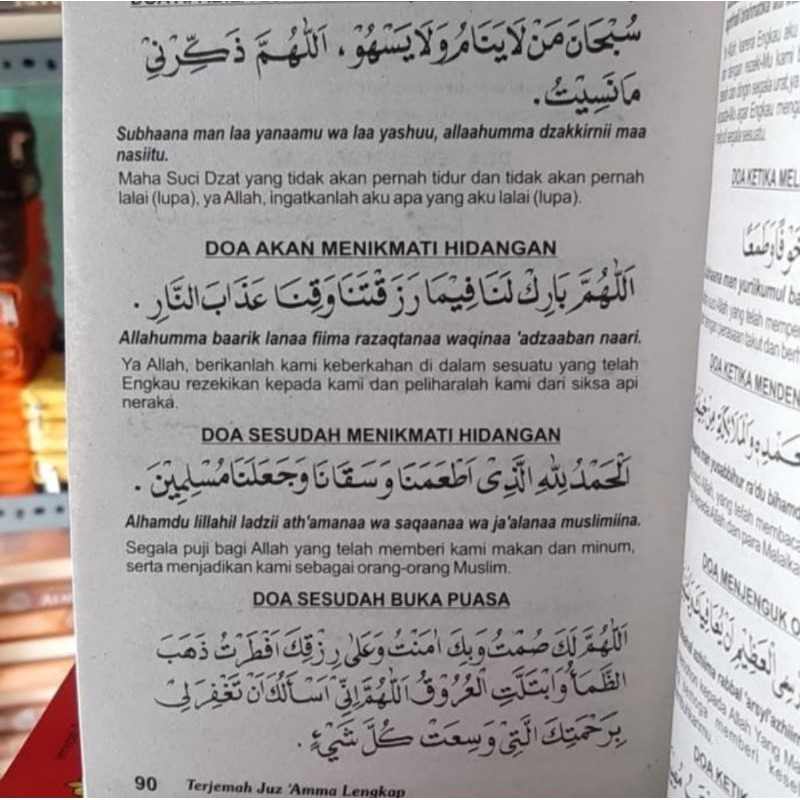 سُبْحَانَ مَنْ لَا يَنَامُ وَلَا يَسْهُوْ، اَللّٰهُمَّ ذَكِّرْنِيْ
مَا نَسِيْتُ.
Subhaana man laa yanaamu wa laa yashuu, allaahumma dzakkirnii maa
nasiitu.
Maha Suci Dzat yang tidak akan pernah tidur dan tidak akan pernah
lalai (lupa), ya Allah, ingatkanlah aku apa yang aku lalai (lupa).
DOA AKAN MENIKMATI HIDANGAN
اَللّٰهُمَّ بَارِكْ لَنَا فِيْمَا رَزَقْتَنَا وَقِنَا عَذَابَ النَّارِ.
Allahumma baarik lanaa fiima razaqtanaa waqinaa 'adzaaban naari.
Ya Allah, berikanlah kami keberkahan di dalam sesuatu yang telah
Engkau rezekikan kepada kami dan peliharalah kami dari siksa api
neraka.
DOA SESUDAH MENIKMATI HIDANGAN
اَلْحَمْدُ لِلّٰهِ الَّذِىْ اَطْعَمَنَا وَسَقَانَا وَجَعَلَنَا مُسْلِمِيْنَ.
Alhamdu lillahil ladzii ath'amanaa wa saqaanaa wa ja'alanaa muslimiina.
Segala puji bagi Allah yang telah memberi kami makan dan minum,
serta menjadikan kami sebagai orang-orang Muslim.
DOA SESUDAH BUKA PUASA
اَللّٰهُمَّ لَكَ صُمْتُ وَبِكَ اٰمَنْتُ وَعَلٰى رِزْقِكَ اَفْطَرْتُ ذَهَبَ
الظَّمَأُ وَابْتَلَّتِ الْعُرُوْقُ اَللّٰهُمَّ اِنِّيْ اَسْأَلُكَ اَنْ تَغْفِرَلِيْ
بِرَحْمَتِكَ الَّتِيْ وَسِعَتْ كُلَّ شَيْءٍ.
90 Terjemah Juz 'Amma Lengkap
DOA KETIKA MEL
خَوْفًا وَطَمَعًا
DOA KETIKA MENDEN
DOA MENJENGUK O
DOA KETIK